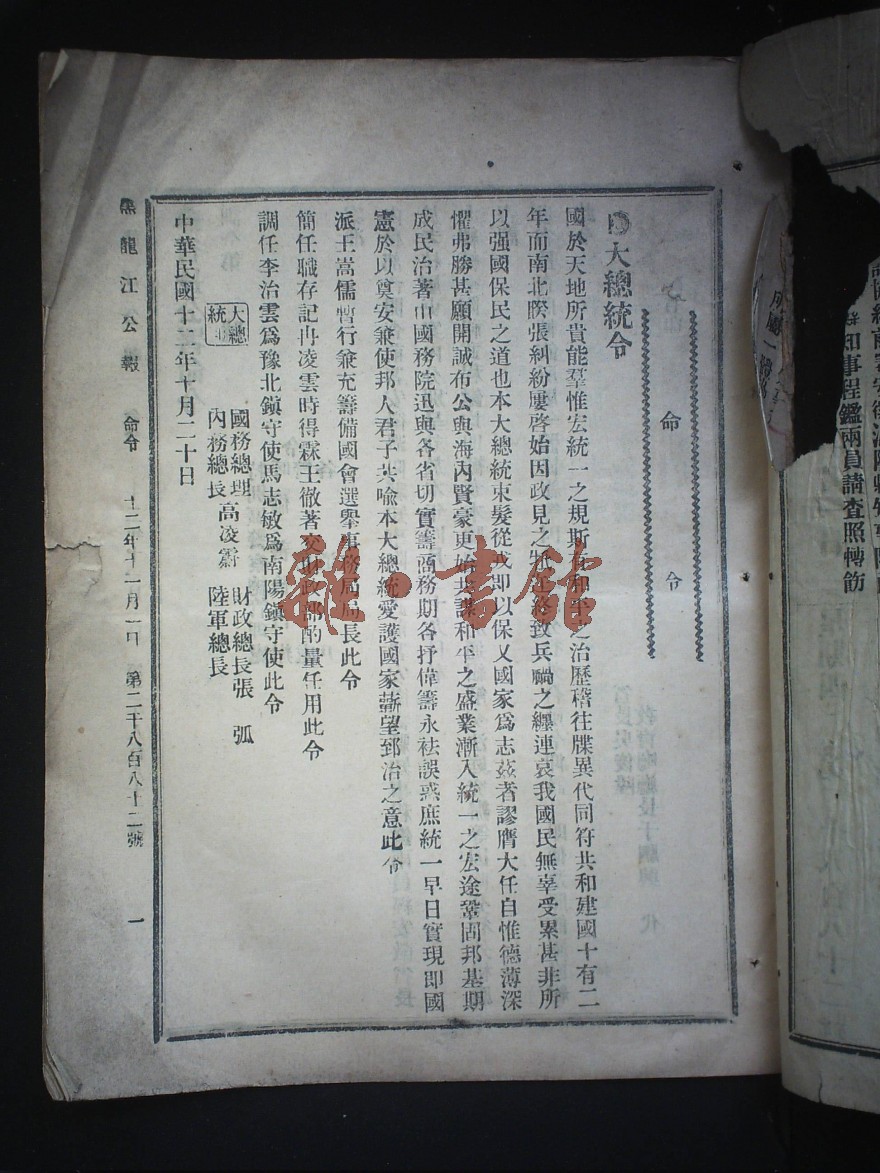 命令
大總統令
國於天地所貴能羣惟宏統一之規斯 和平之治歷稽往牒異代同符共和建國十有二
年而南北睽張糾紛屢啓始因政見之 終致兵禍之纏連哀我國民無辜受累甚非所
以强國保民之道也本大總統束髮從戎即以保乂國家爲志茲者謬膺大任自惟德薄深
懼弗勝甚願開誠布公與海內賢豪更始共謀和平之盛業漸入統一之宏途鞏固邦基期
成民治著由國務院迅與各省切實籌商務期各抒偉籌永祛誤惑庶統一早日實現即國
憲於以奠安兼使邦人君子共喩本大總統愛護國家蘄望郅治之意此令
派王嵩儒暫行兼充籌備國會選舉事務局局長此令
簡任職存記冉凌雲時得霖王徹著交財政部酌量任用此令
調任李治雲爲豫北鎭守使馬志敏爲南陽鎭守使此令
大總統
國務總理高凌霨 財政總長張 弧
內務總長 陸軍總長
中華民國十二年十月二十日
黑龍江公報 命令 十二年十一月一日 第二千八百八十二號 一
知事程鑑兩員請查照轉飭
雜·書館